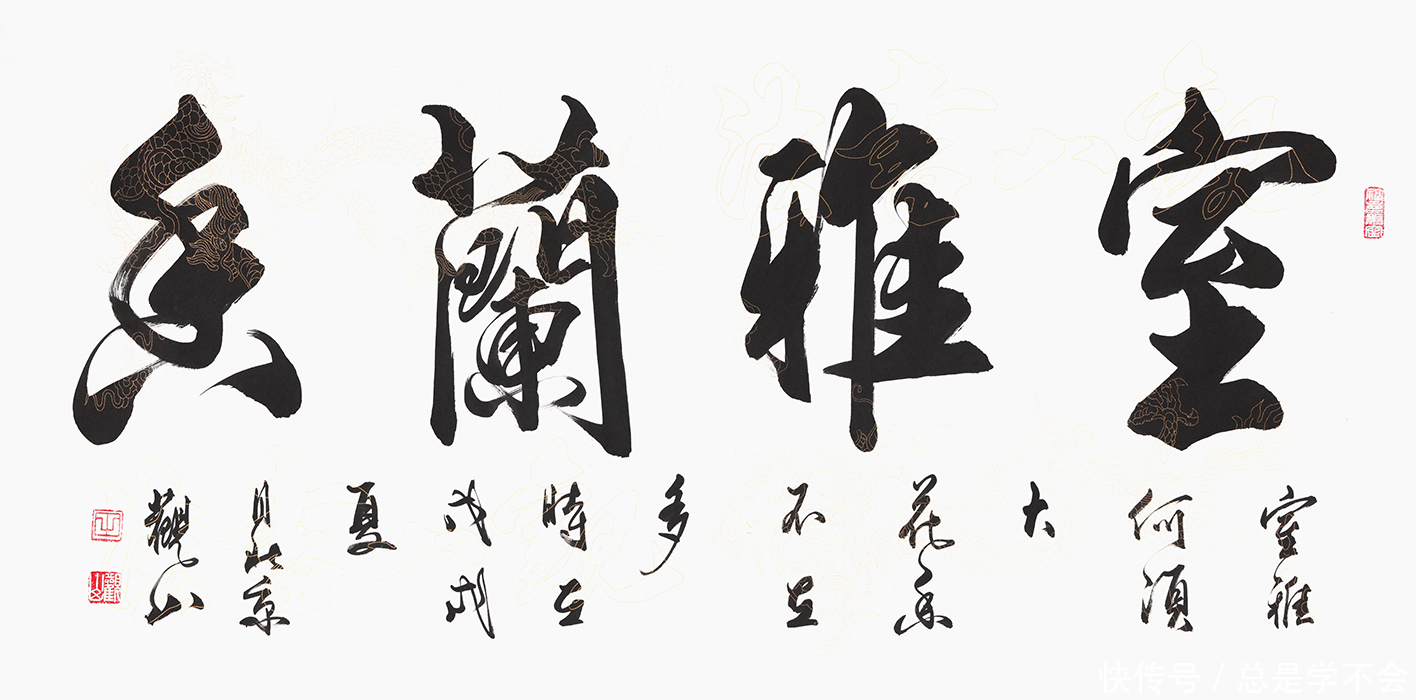 室雅蘭香
室雅
何須
大
花香
不在
多
時在
戊戌
夏
月北京
觀山
快传号 / 总是学不会